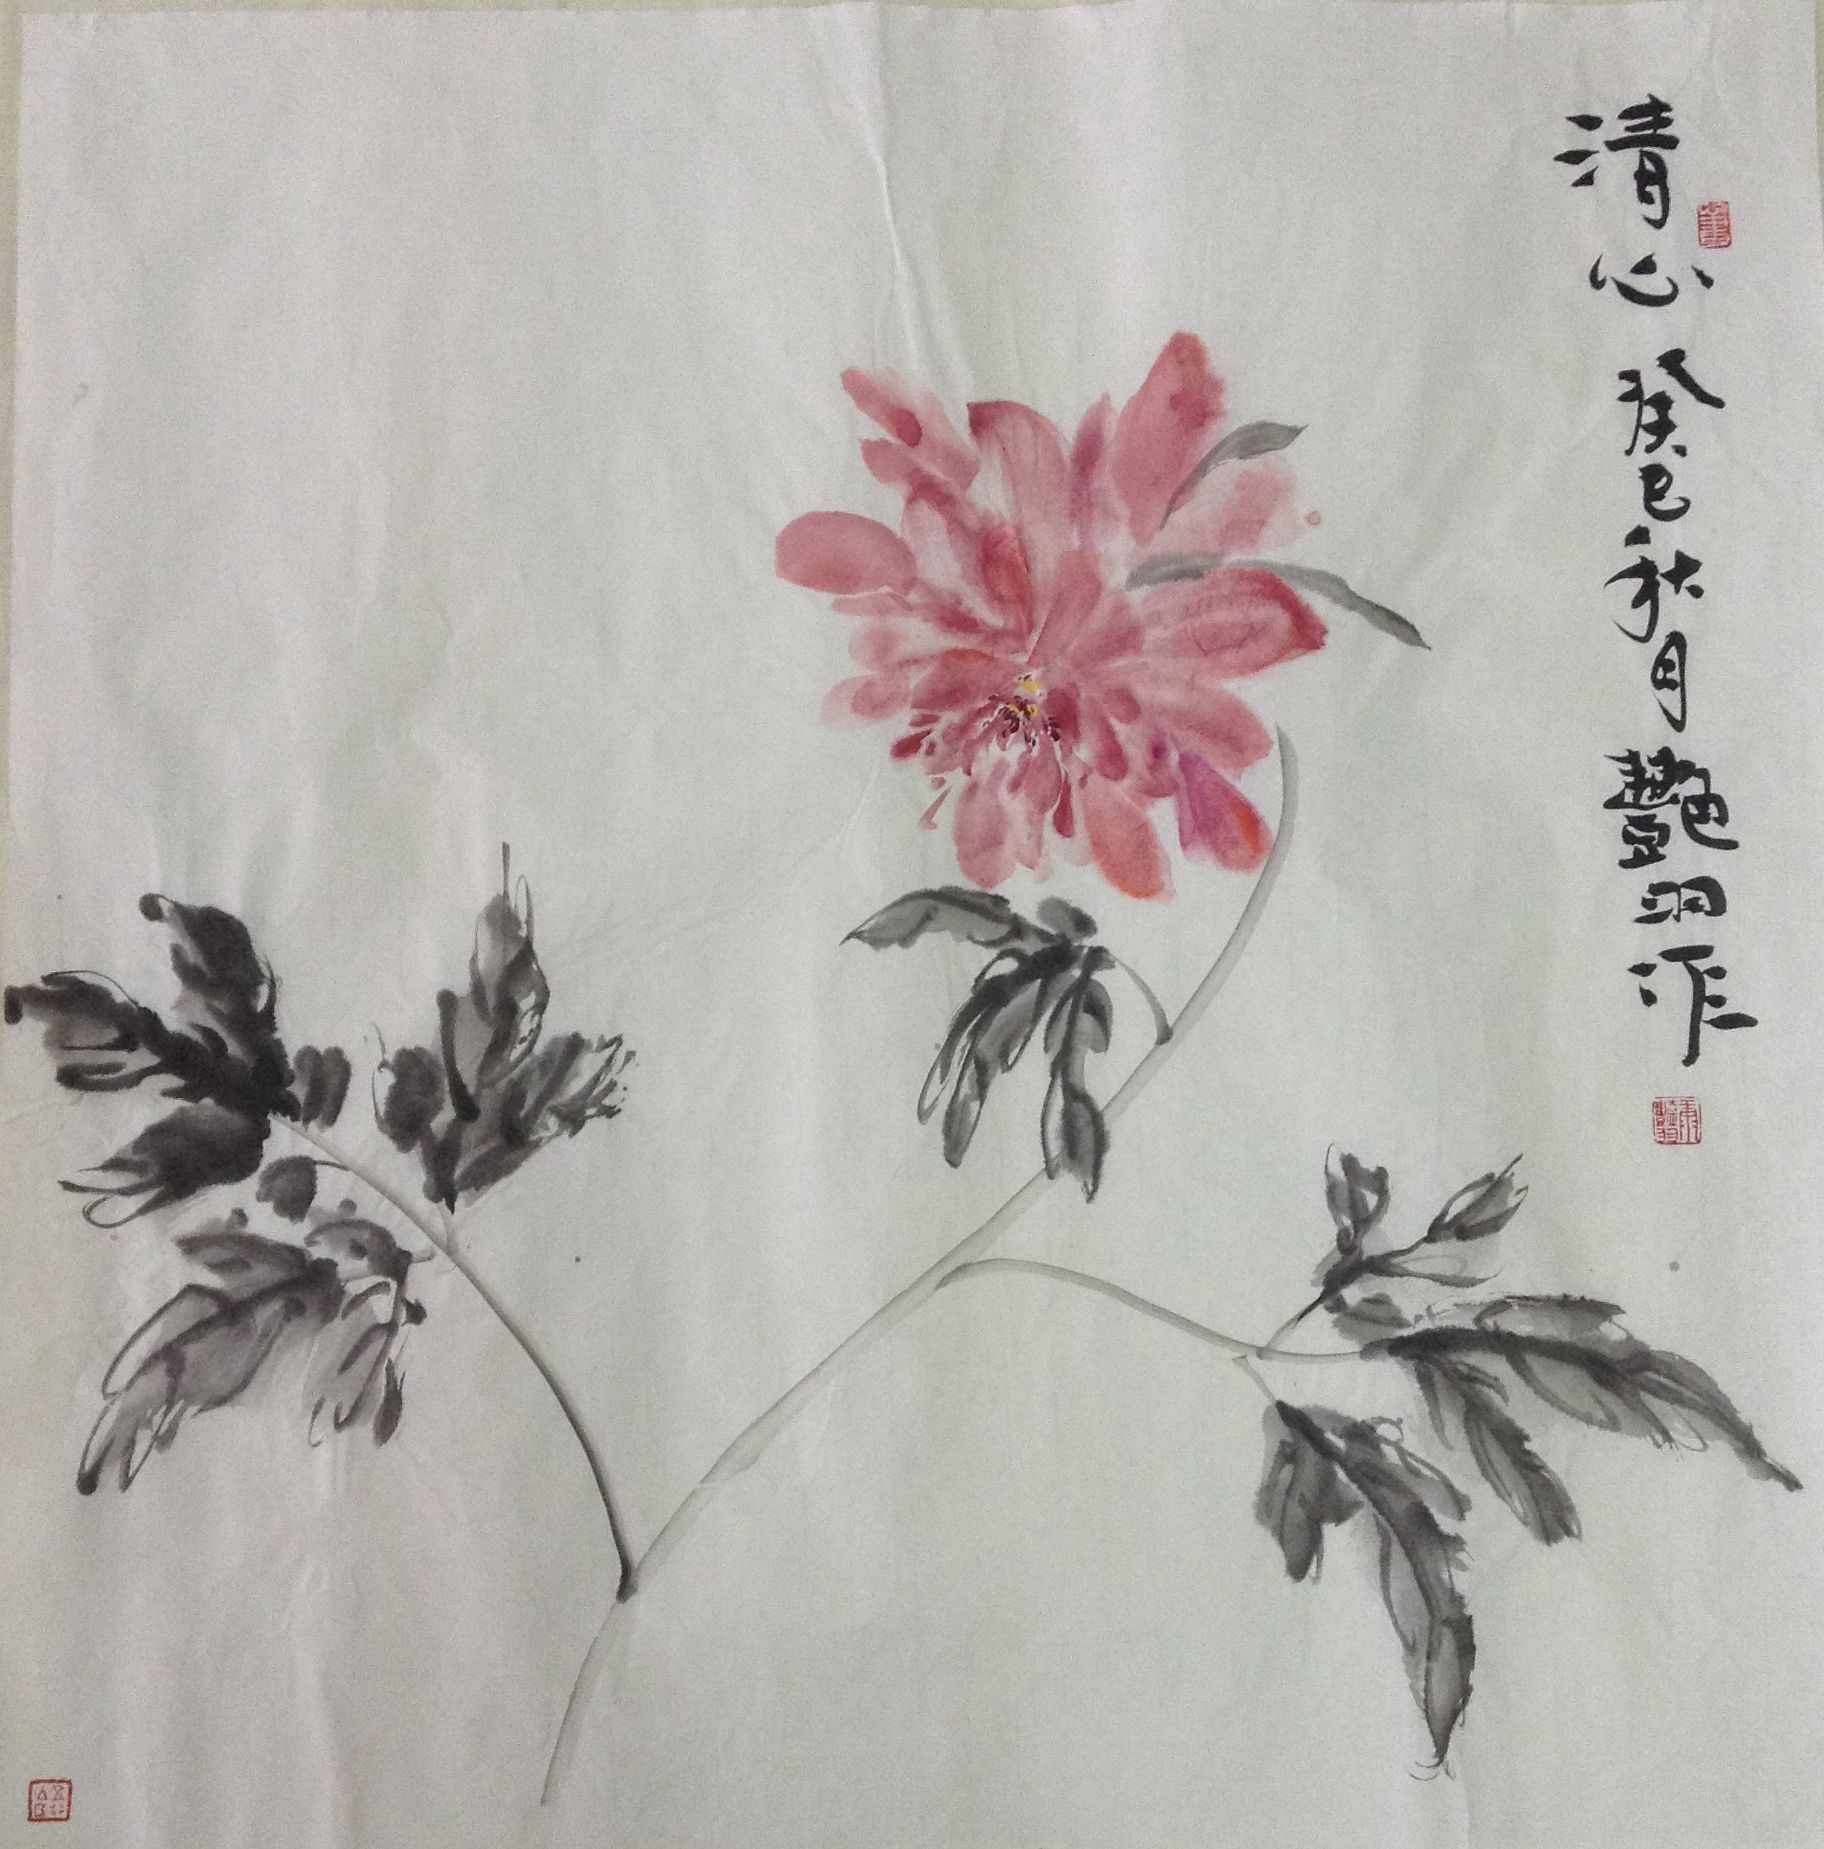 清心 癸巳秋月 艷羽作